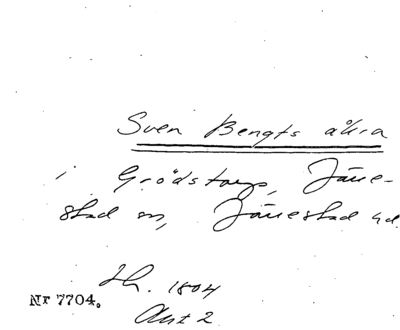 Sven Bengts åkra
i Grödstorp, Järre-
stad sn, Järrestad hd.
Sk. 1804
Akt 2
Nr 7704.